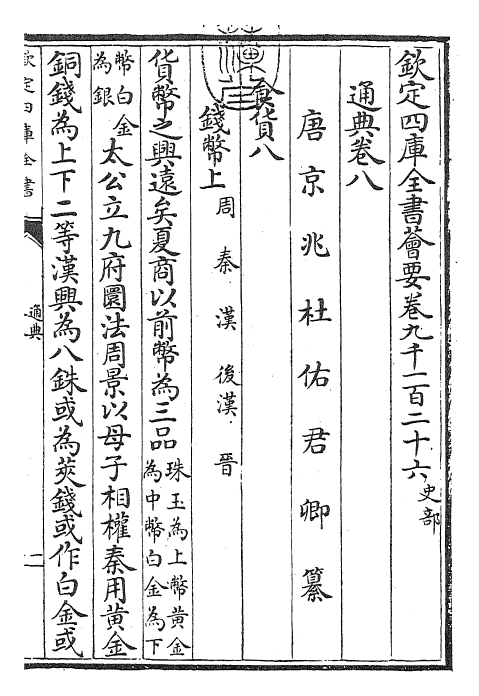 欽定四庫全書薈要卷九千一百二十六史部
通典卷八
唐京兆杜佑君卿纂
食貨八
錢幣上周秦漢後漢晉
貨幣之興遠矣夏商以前幣為三品珠玉為上幣黃金為中幣白金為下
幣白金為銀太公立九府圜法周景以母子相權秦用黃金
銅錢為上下二等漢興為八銖或為莢錢或作白金或
欽定四庫全書
通典
一